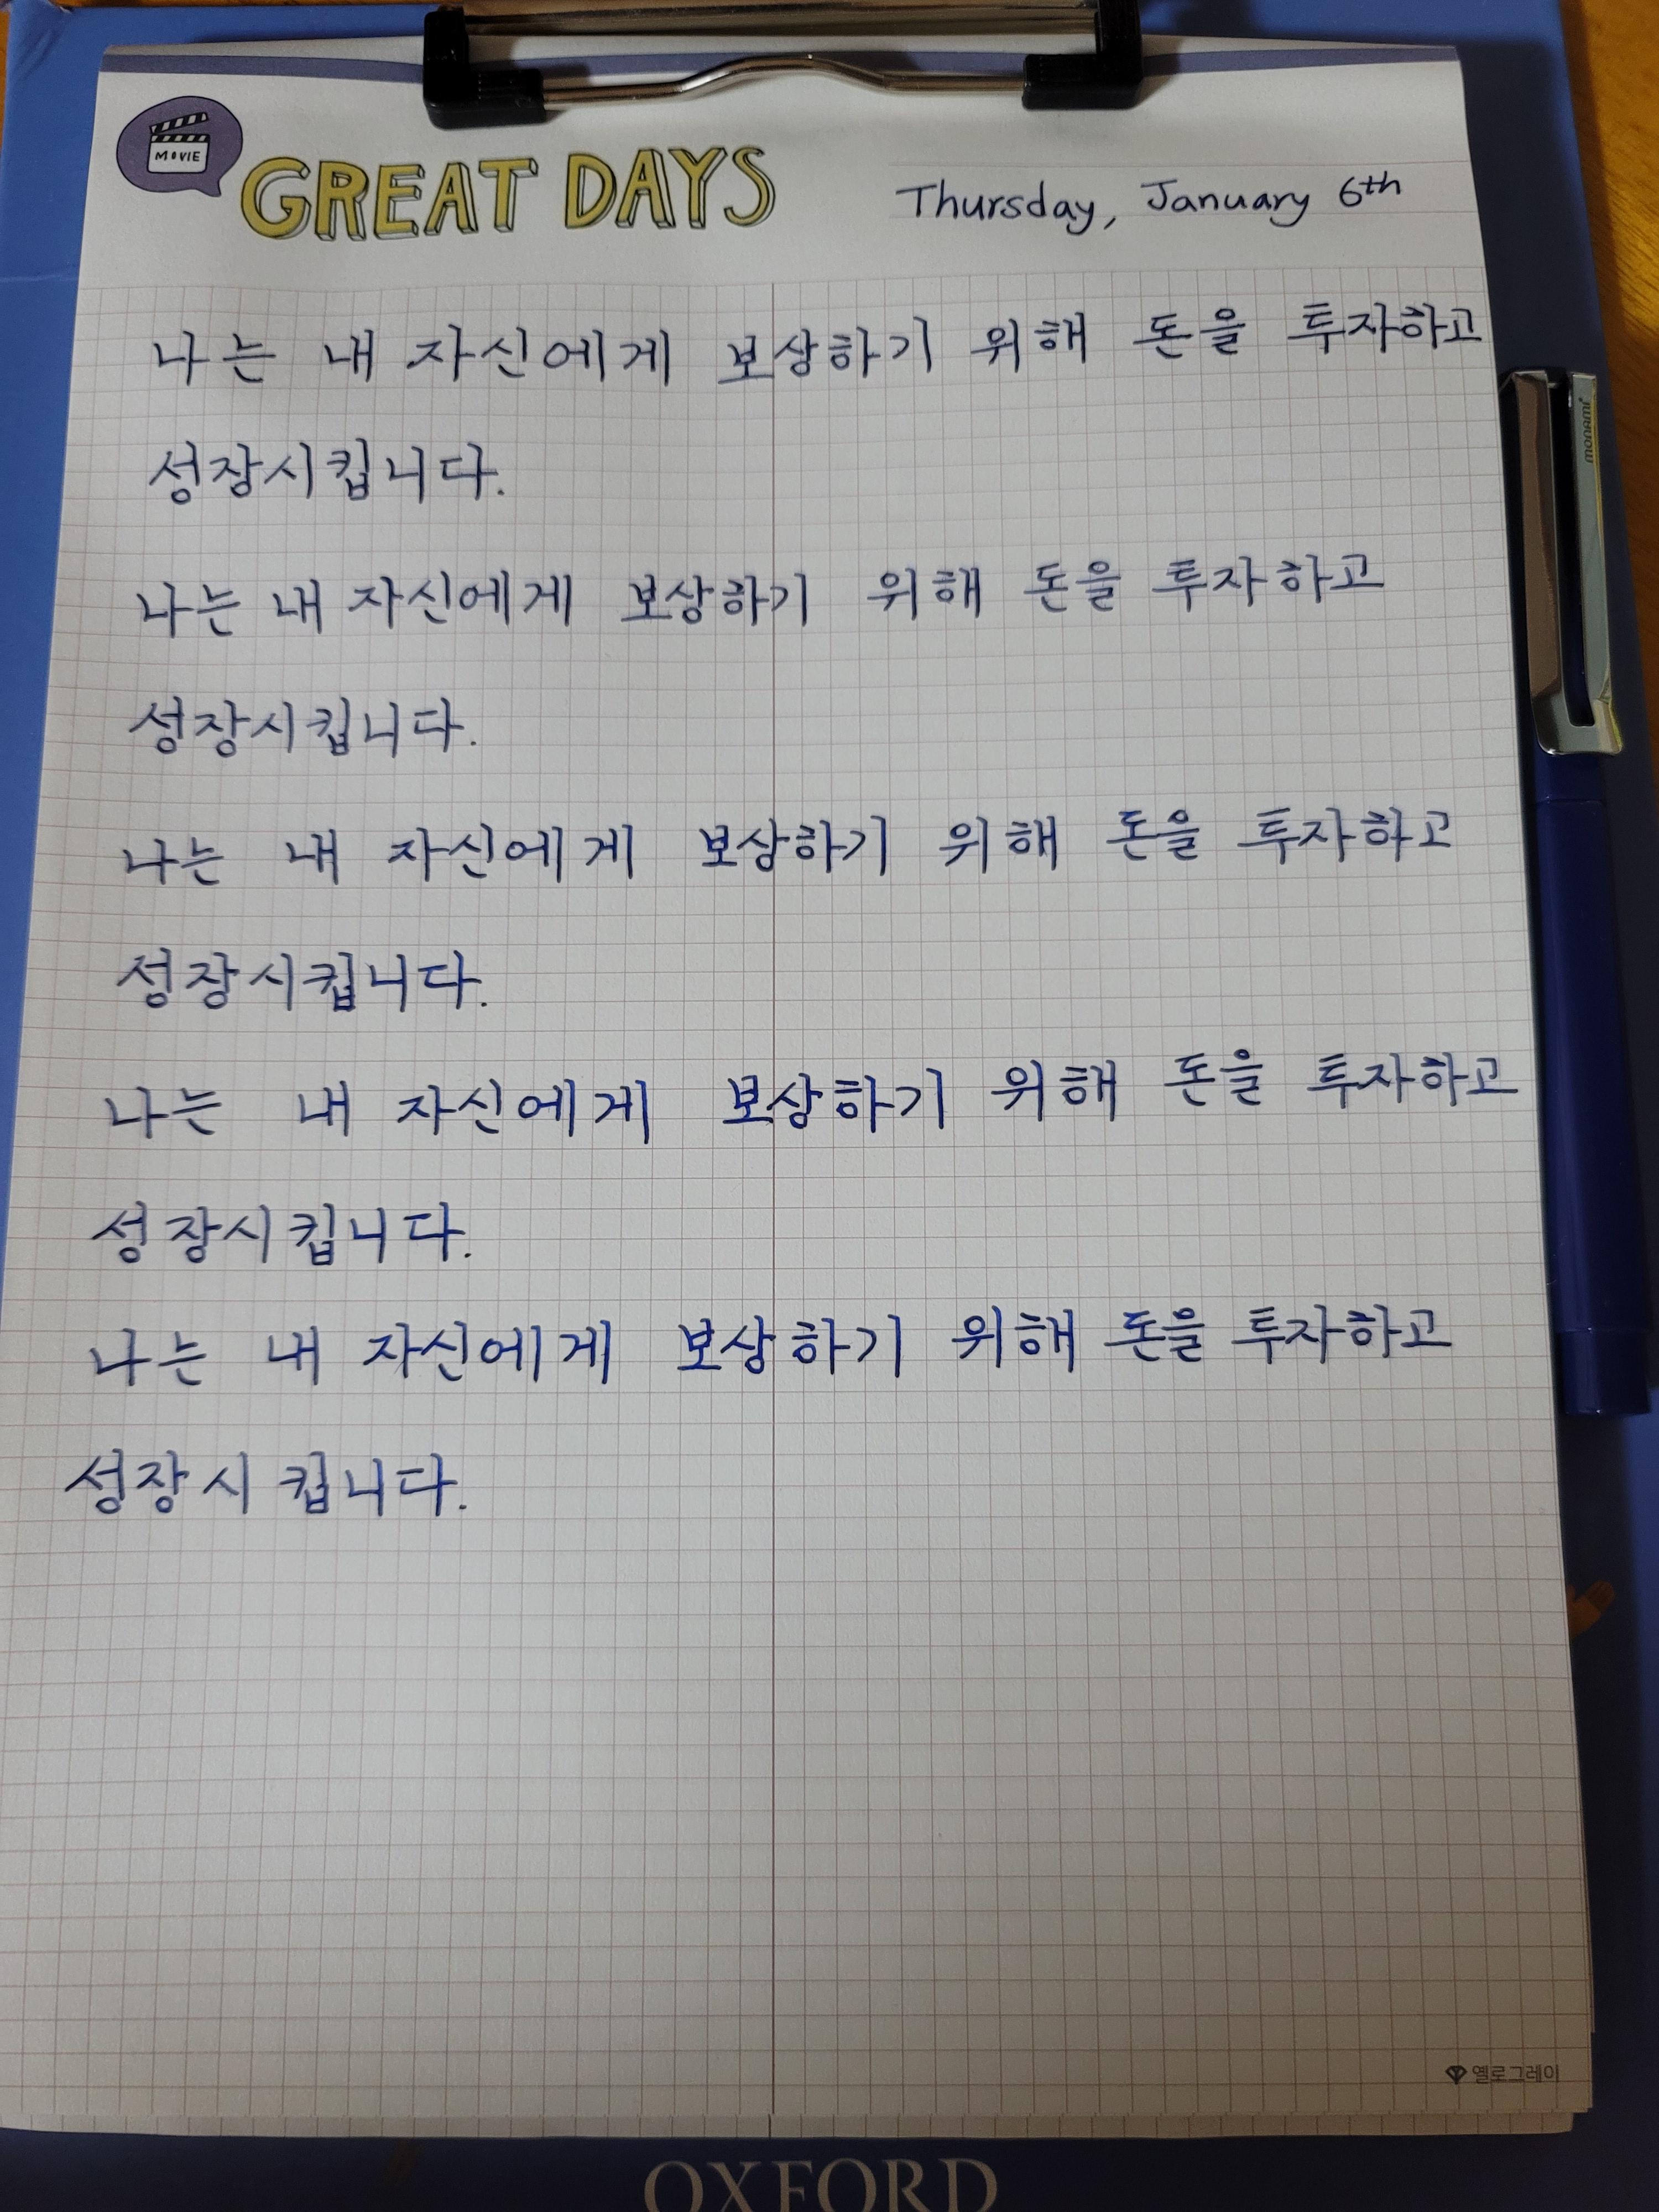 MOVIE
GREAT DAYS
Thursday, January 6th
나는 내 자신에게 보상하기 위해 돈을 투자하고
성장시킵니다.
나는 내 자신에게 보상하기 위해 돈을 투자하고
성장시킵니다.
나는 내 자신에게 보상하기 위해 돈을 투자하고
성장시킵니다.
나는 내 자신에게 보상하기 위해 돈을 투자하고
성장시킵니다.
나는 내 자신에게 보상하기 위해 돈을 투자하고
성장시킵니다.
monami
옐로그레이
OXFORD